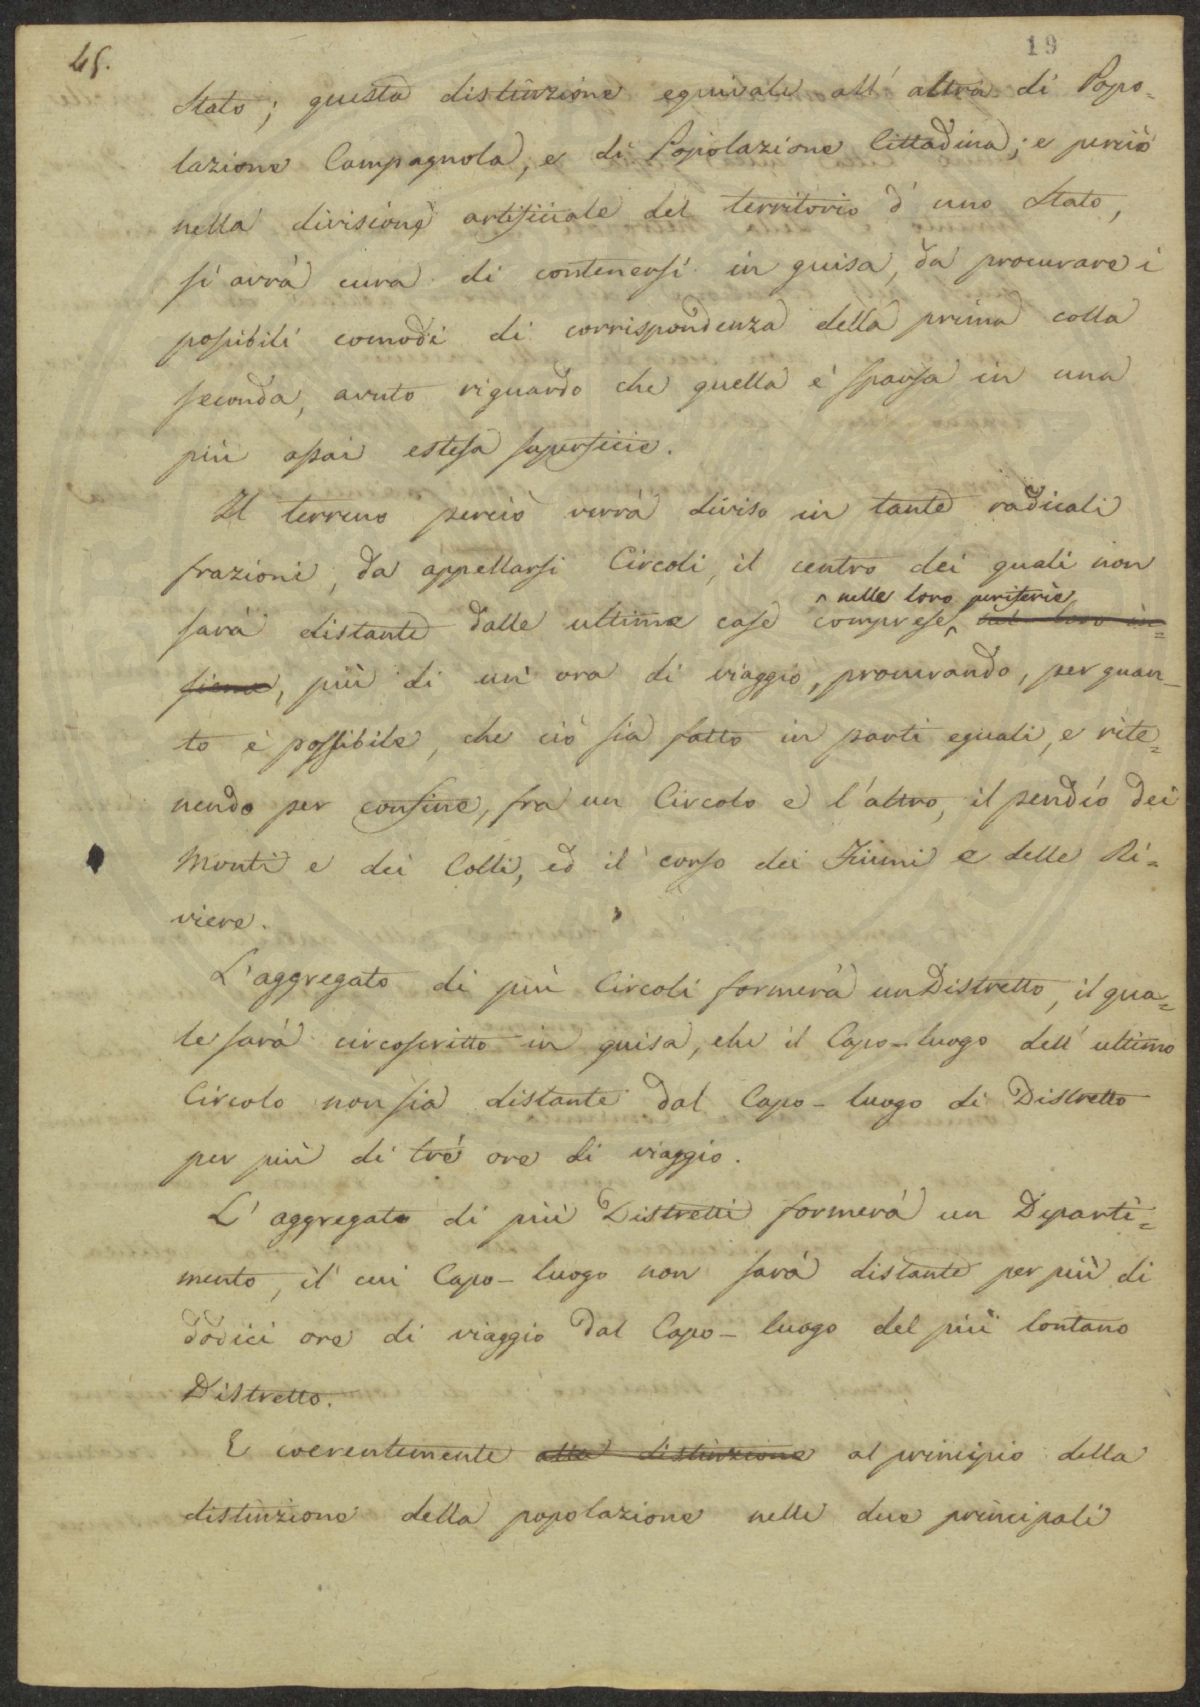 45.
19
Stato; questa distinzione equivale all'altra di Popo=
lazione Campagnola, e di Popolazione Cittadina; e perciò
nella divisione artificiale del territorio d'uno Stato,
si avrà cura di contenersi in guisa, da procurare i
possibili comodi di corrispondenza della prima colla
seconda, avuto riguardo che quella è sparsa in una
più assai estesa superficie.
Il terreno perciò verrà diviso in tante radicali
frazioni, da appellarsi Circoli, il centro dei quali non
^ nelle loro periferie
sarà distante dalle ultime case comprese ^ nel loro in=
sieme, più di un'ora di viaggio, procurando, per quan_
to è possibile, che ciò sia fatto in parti eguali, e rite=
nendo per confine, fra un Circolo e l'altro, il pendío dei
Monti e dei Colli, ed il corso dei Fiumi e delle Ri=
viere.
L'aggregato di più Circoli formerà un Distretto, il qua=
le sarà circoscritto in guisa, che il Capo-luogo dell'ultimo
Circolo non sia distante dal Capo-luogo di Distretto
per più di trè ore di viaggio.
L'aggregato di più Distretti formerà un Diparti=
mento, il cui Capo-luogo non sarà distante per più di
dodici ore di viaggio dal Capo-luogo del più lontano
Distretto.
E coerentemente alla distinzione al principio della
distinzione della popolazione nelle due principali